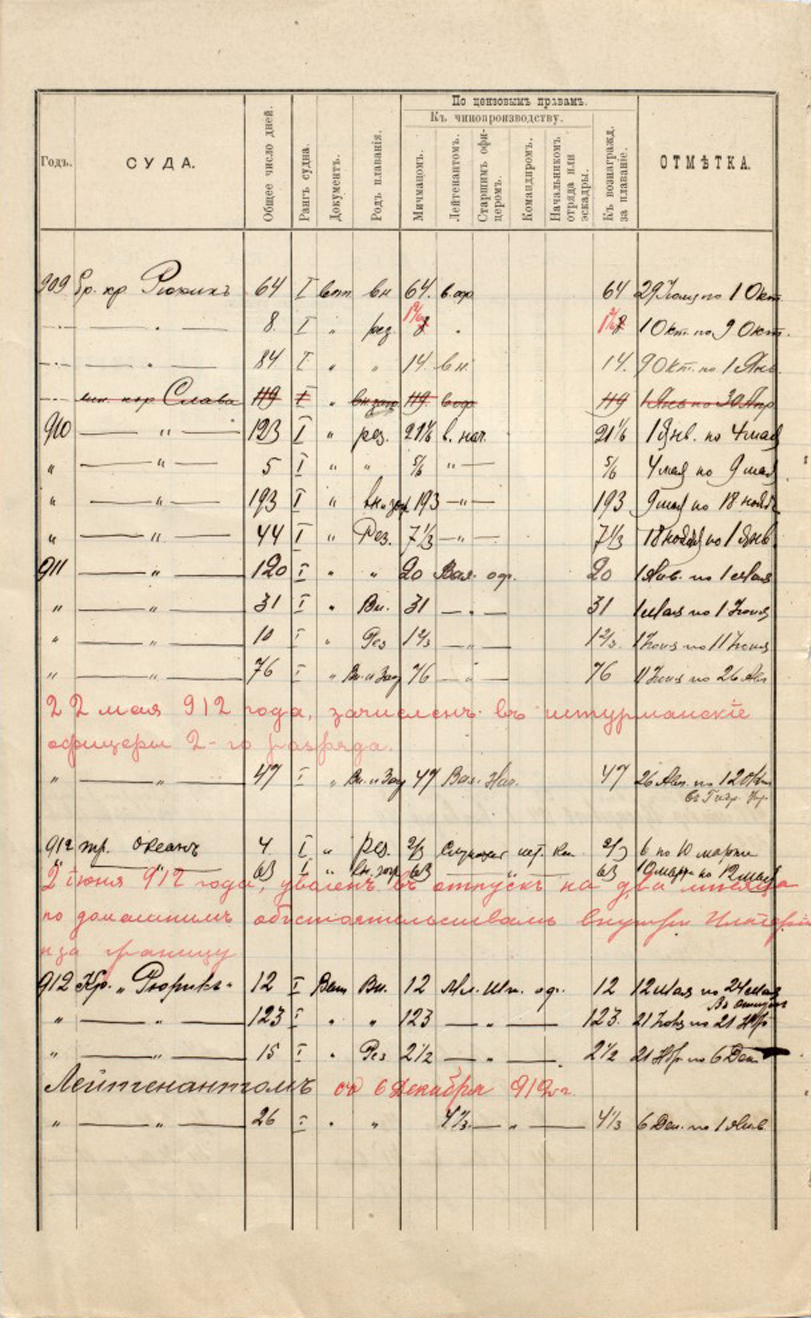 По цензовымъ правамъ.
Къ чинопроизводству.
Годъ. СУДА. Общее число дней. Рангъ судна. Документъ. Родъ плаванія. Мичмацомъ. Лейтенантомъ. Старшимъ офицеромъ. Командиромъ. Начальникомъ отряда или эскадры. Къ вознагражд. за плаваніе. ОТМѢТКА.
909 бр. кр Рюрикъ 64 I вн 64. в. оф 64 1 Окт.
" 8 I " рез. 8 " 8 1 Окт. по 9 Окт.
" 84 I " " 14 14. 9 Окт. по 1 Янв.
Слава 119 I 119 119 1 Янв по 30 Апр
910 " 123 I " рез. 21 1/6 в. нач. 21 1/6 1 Янв. по 4 мая
" " 5 I " " 5/6 " 5/6 4 мая по 9 мая
" " 193 I " 193 " 193 9 мая по 18 ноября
" " 44 I " Рез. 7 1/3 " 7 1/3 18 ноября по 1 Янв
911 " 120 I " " 20 Вах. оф. 20 1 Янв. по 1 Мая
" " 31 I " Вн. 31 " 31 1 Мая по 1 Іюня
" " 10 I " Рез 1 2/3 " 1 2/3. 1 Іюня по 11 Іюня
" " 76 I " Вн. и Загр 76 " 76 11 Іюня по 26 Авг
22 мая 912 года, зачисленъ въ штурманскіе
офицеры 2-го разряда.
" " 47 I " Вн. и Загр 47 Вах. Нач. 47 26 Авг. по 12 Окт
912 тр. Океанъ 4 I " Рез. 2/3 2/3 6 по 10 марта
" " 63 I " Вн. загр 63 " 63 10 марта по 12 мая
2 іюня 912 года, уволенъ въ отпускъ на два мѣсяца
по домашнимъ обстоятельствамъ внутри Имперіи
и за границу
912 Кр. „Рюрикъ" 12 I Вах Вн. 12 Мл. Шт. оф. 12 12 Мая по 24 Мая
" " 123 I " " 123 " 123. 21 Нбр
" " 15 I " Рез 2 1/2 " 2 1/2 21 Нбр по 6 Дек
Лейтенантомъ съ 6 Декабря 912 г.
" " 26 I " " 4 1/3. " 4 1/3 6 Дек. по 1 Янв.